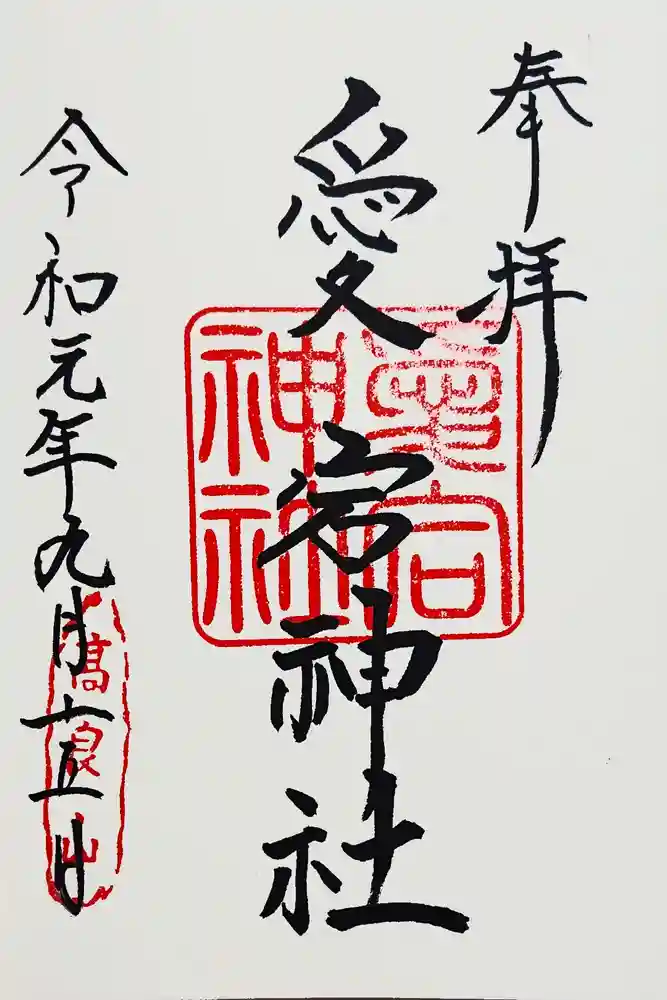 奉拝
愛宕神社
愛宕神社
令和元年九月十五日
髙良山